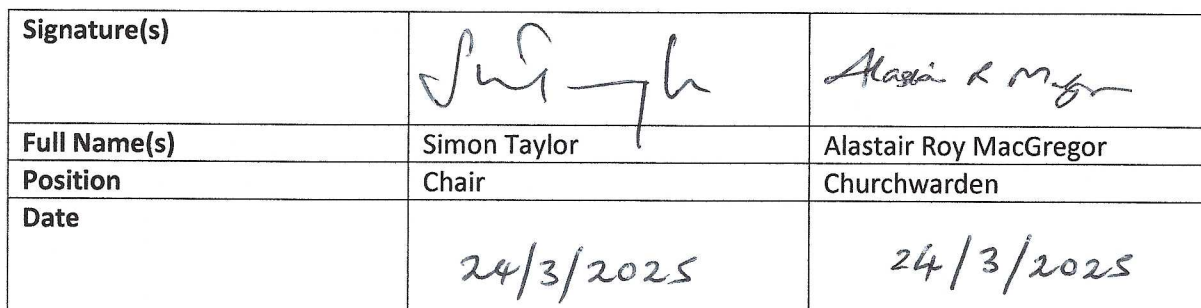 Signature(s)
Full Name(s) Simon Taylor Alastair Roy MacGregor
Position Chair Churchwarden
Date 24/3/2025 24/3/2025